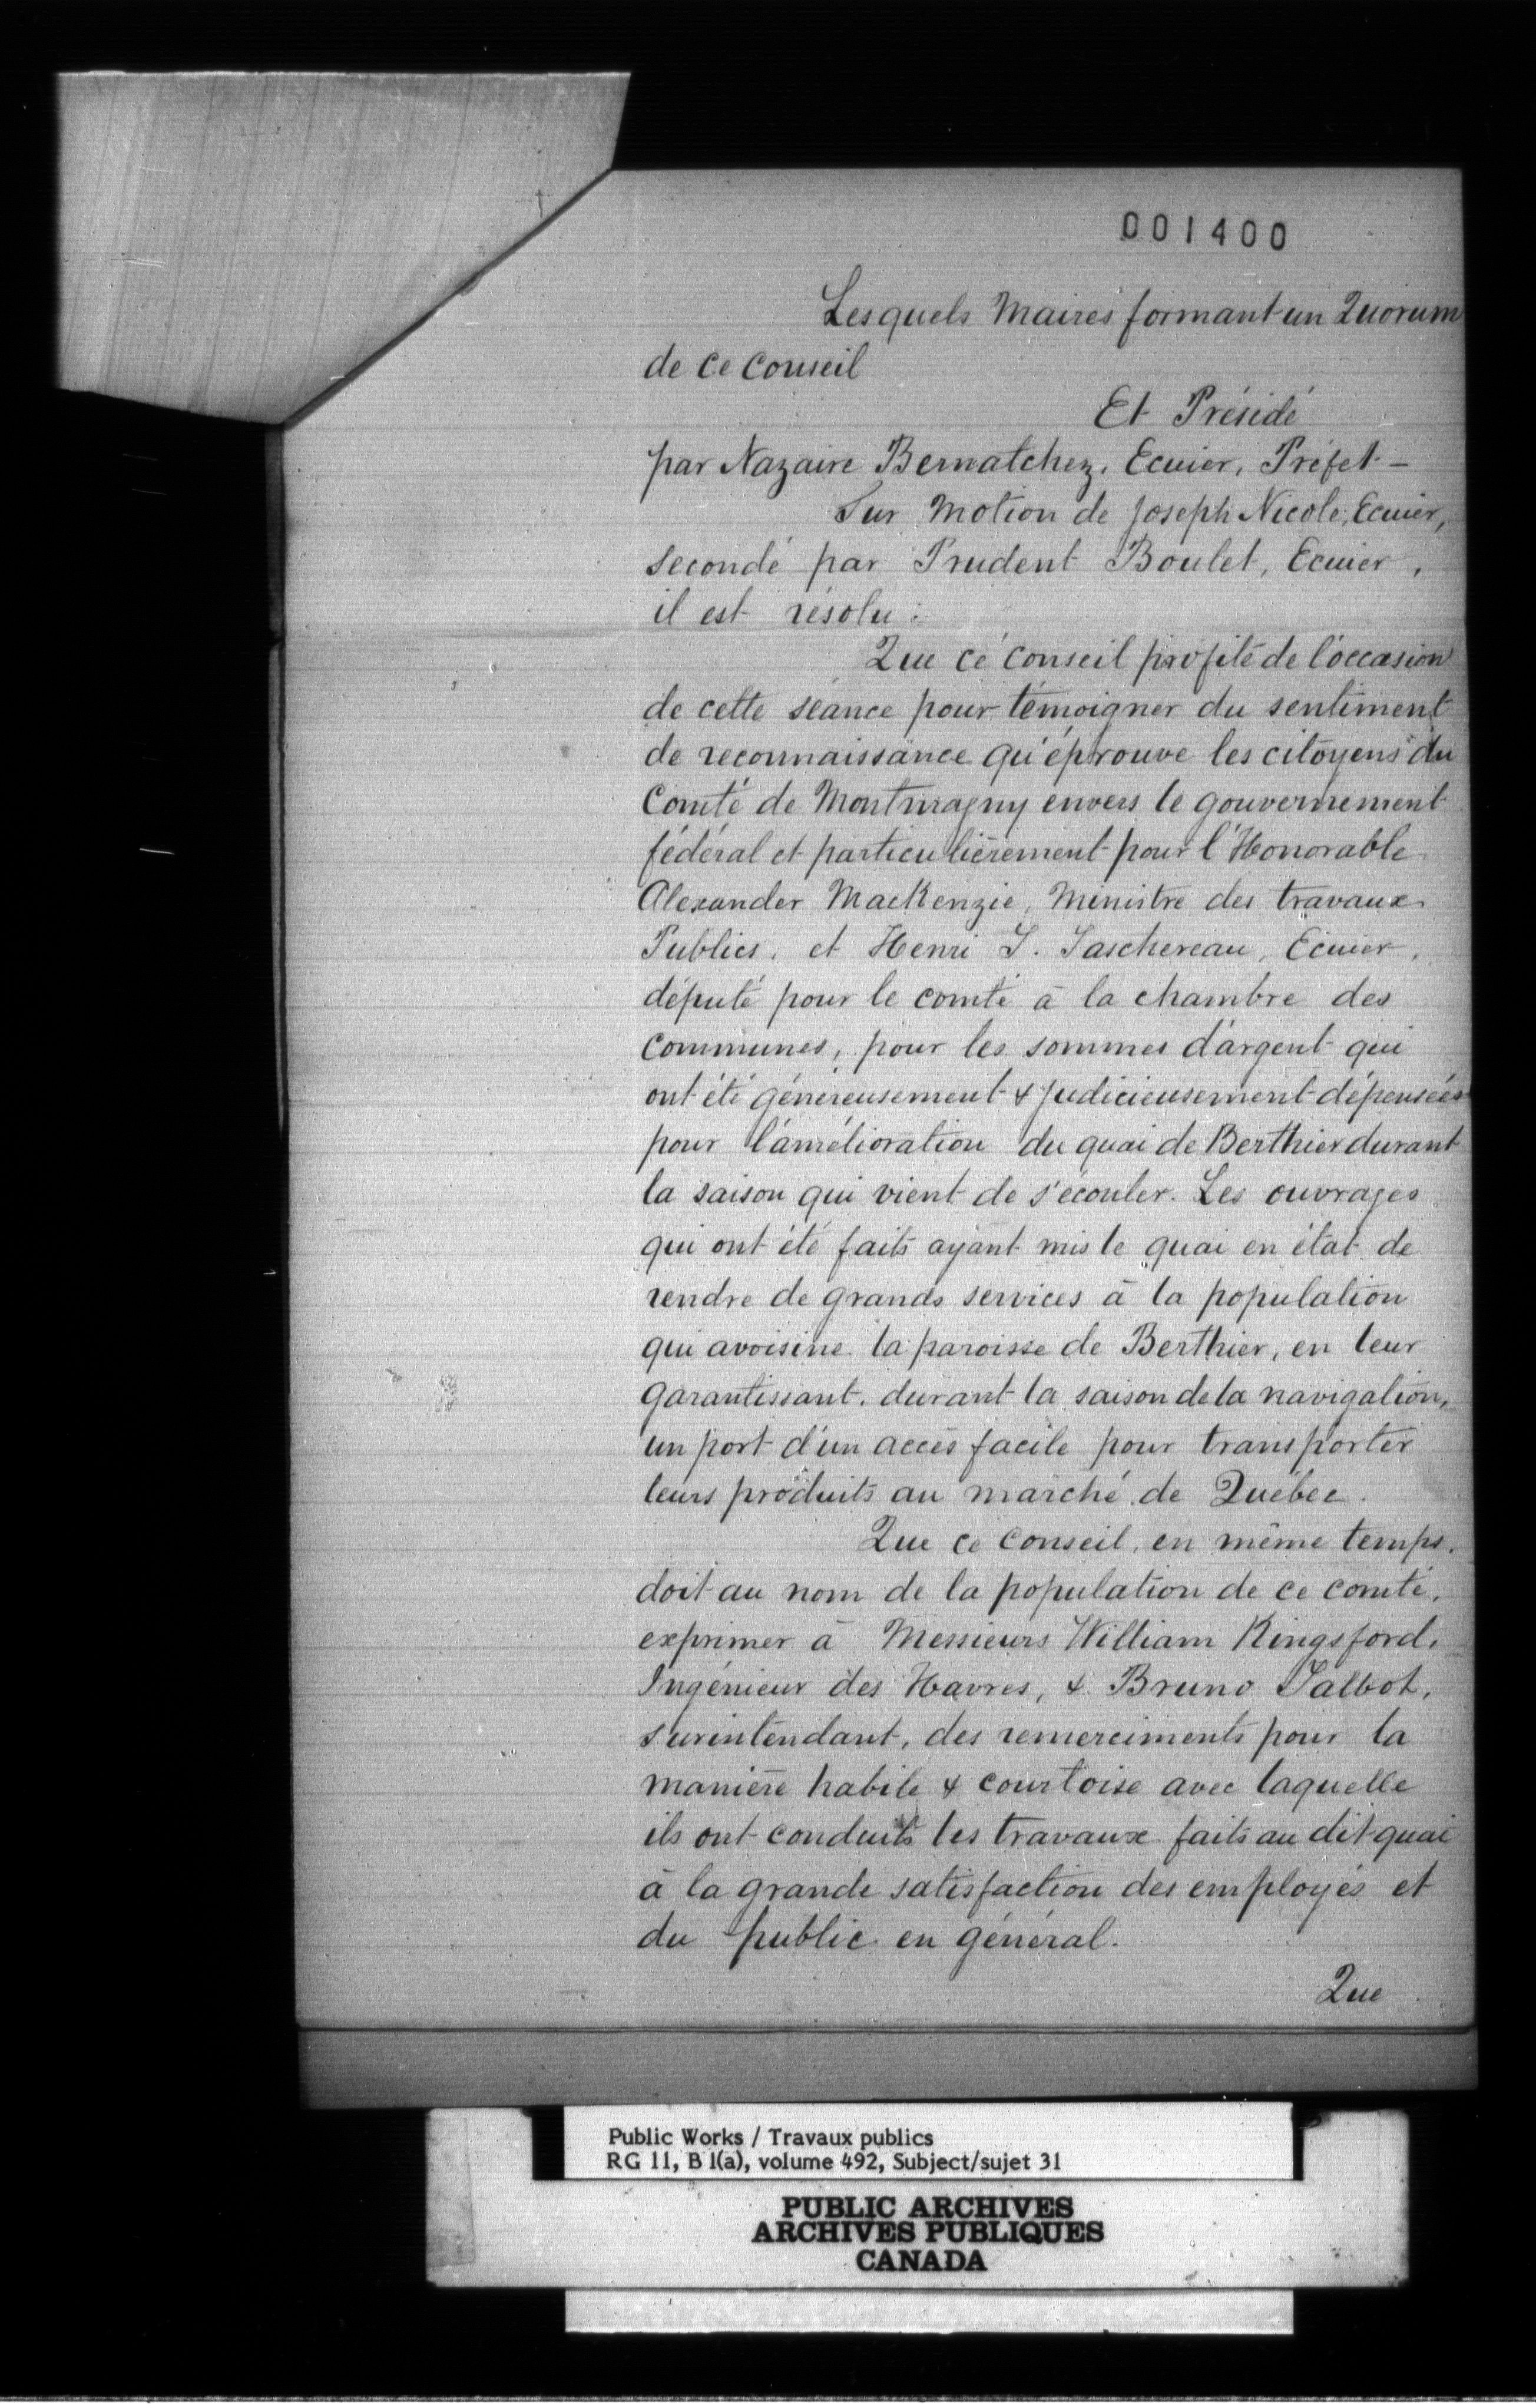 001400
Lesquels Maires formant un Quorum
de ce Conseil
Et Présidé
par Nazaire Bernatchez, Ecuier, Préfet -
Sur Motion de Joseph Nicole, Ecuier,
secondé par Prudent Boulet, Ecuier,
il est résolu :
Que ce conseil profite de l'occasion
de cette séance pour témoigner du sentiment
de reconnaissance qu'éprouve les citoyens du
Comté de Montmagny envers le gouvernement
fédéral et particulièrement pour l'Honorable
Alexander MacKenzie, Ministre des travaux
Publics, et Henri T. Taschereau, Ecuier,
député pour le comté à la chambre des
Communes, pour les sommes d'argent qui
ont été généreusement & judicieusement dépensées
pour l'amélioration du quai de Berthier durant
la saison qui vient de s'écouler. Les ouvrages
qui ont été faits ayant mis le quai en état de
rendre de grands services à la population
qui avoisine la paroisse de Berthier, en leur
garantissant, durant la saison de la navigation,
un port d'un accès facile pour transporter
leurs produits au marché de Québec.
Que ce Conseil, en même temps,
doit au nom de la population de ce comté,
exprimer à Messieurs William Kingsford,
Ingénieur des Havres, & Bruno Talbot,
surintendant, des remerciments pour la
manière habile & courtoise avec laquelle
ils ont conduits les travaux faits au dit quai
à la grande satisfaction des employés et
du public en général.
Que
Public Works / Travaux publics
RG 11, B 1(a), volume 492, Subject/sujet 31
PUBLIC ARCHIVES
ARCHIVES PUBLIQUES
CANADA